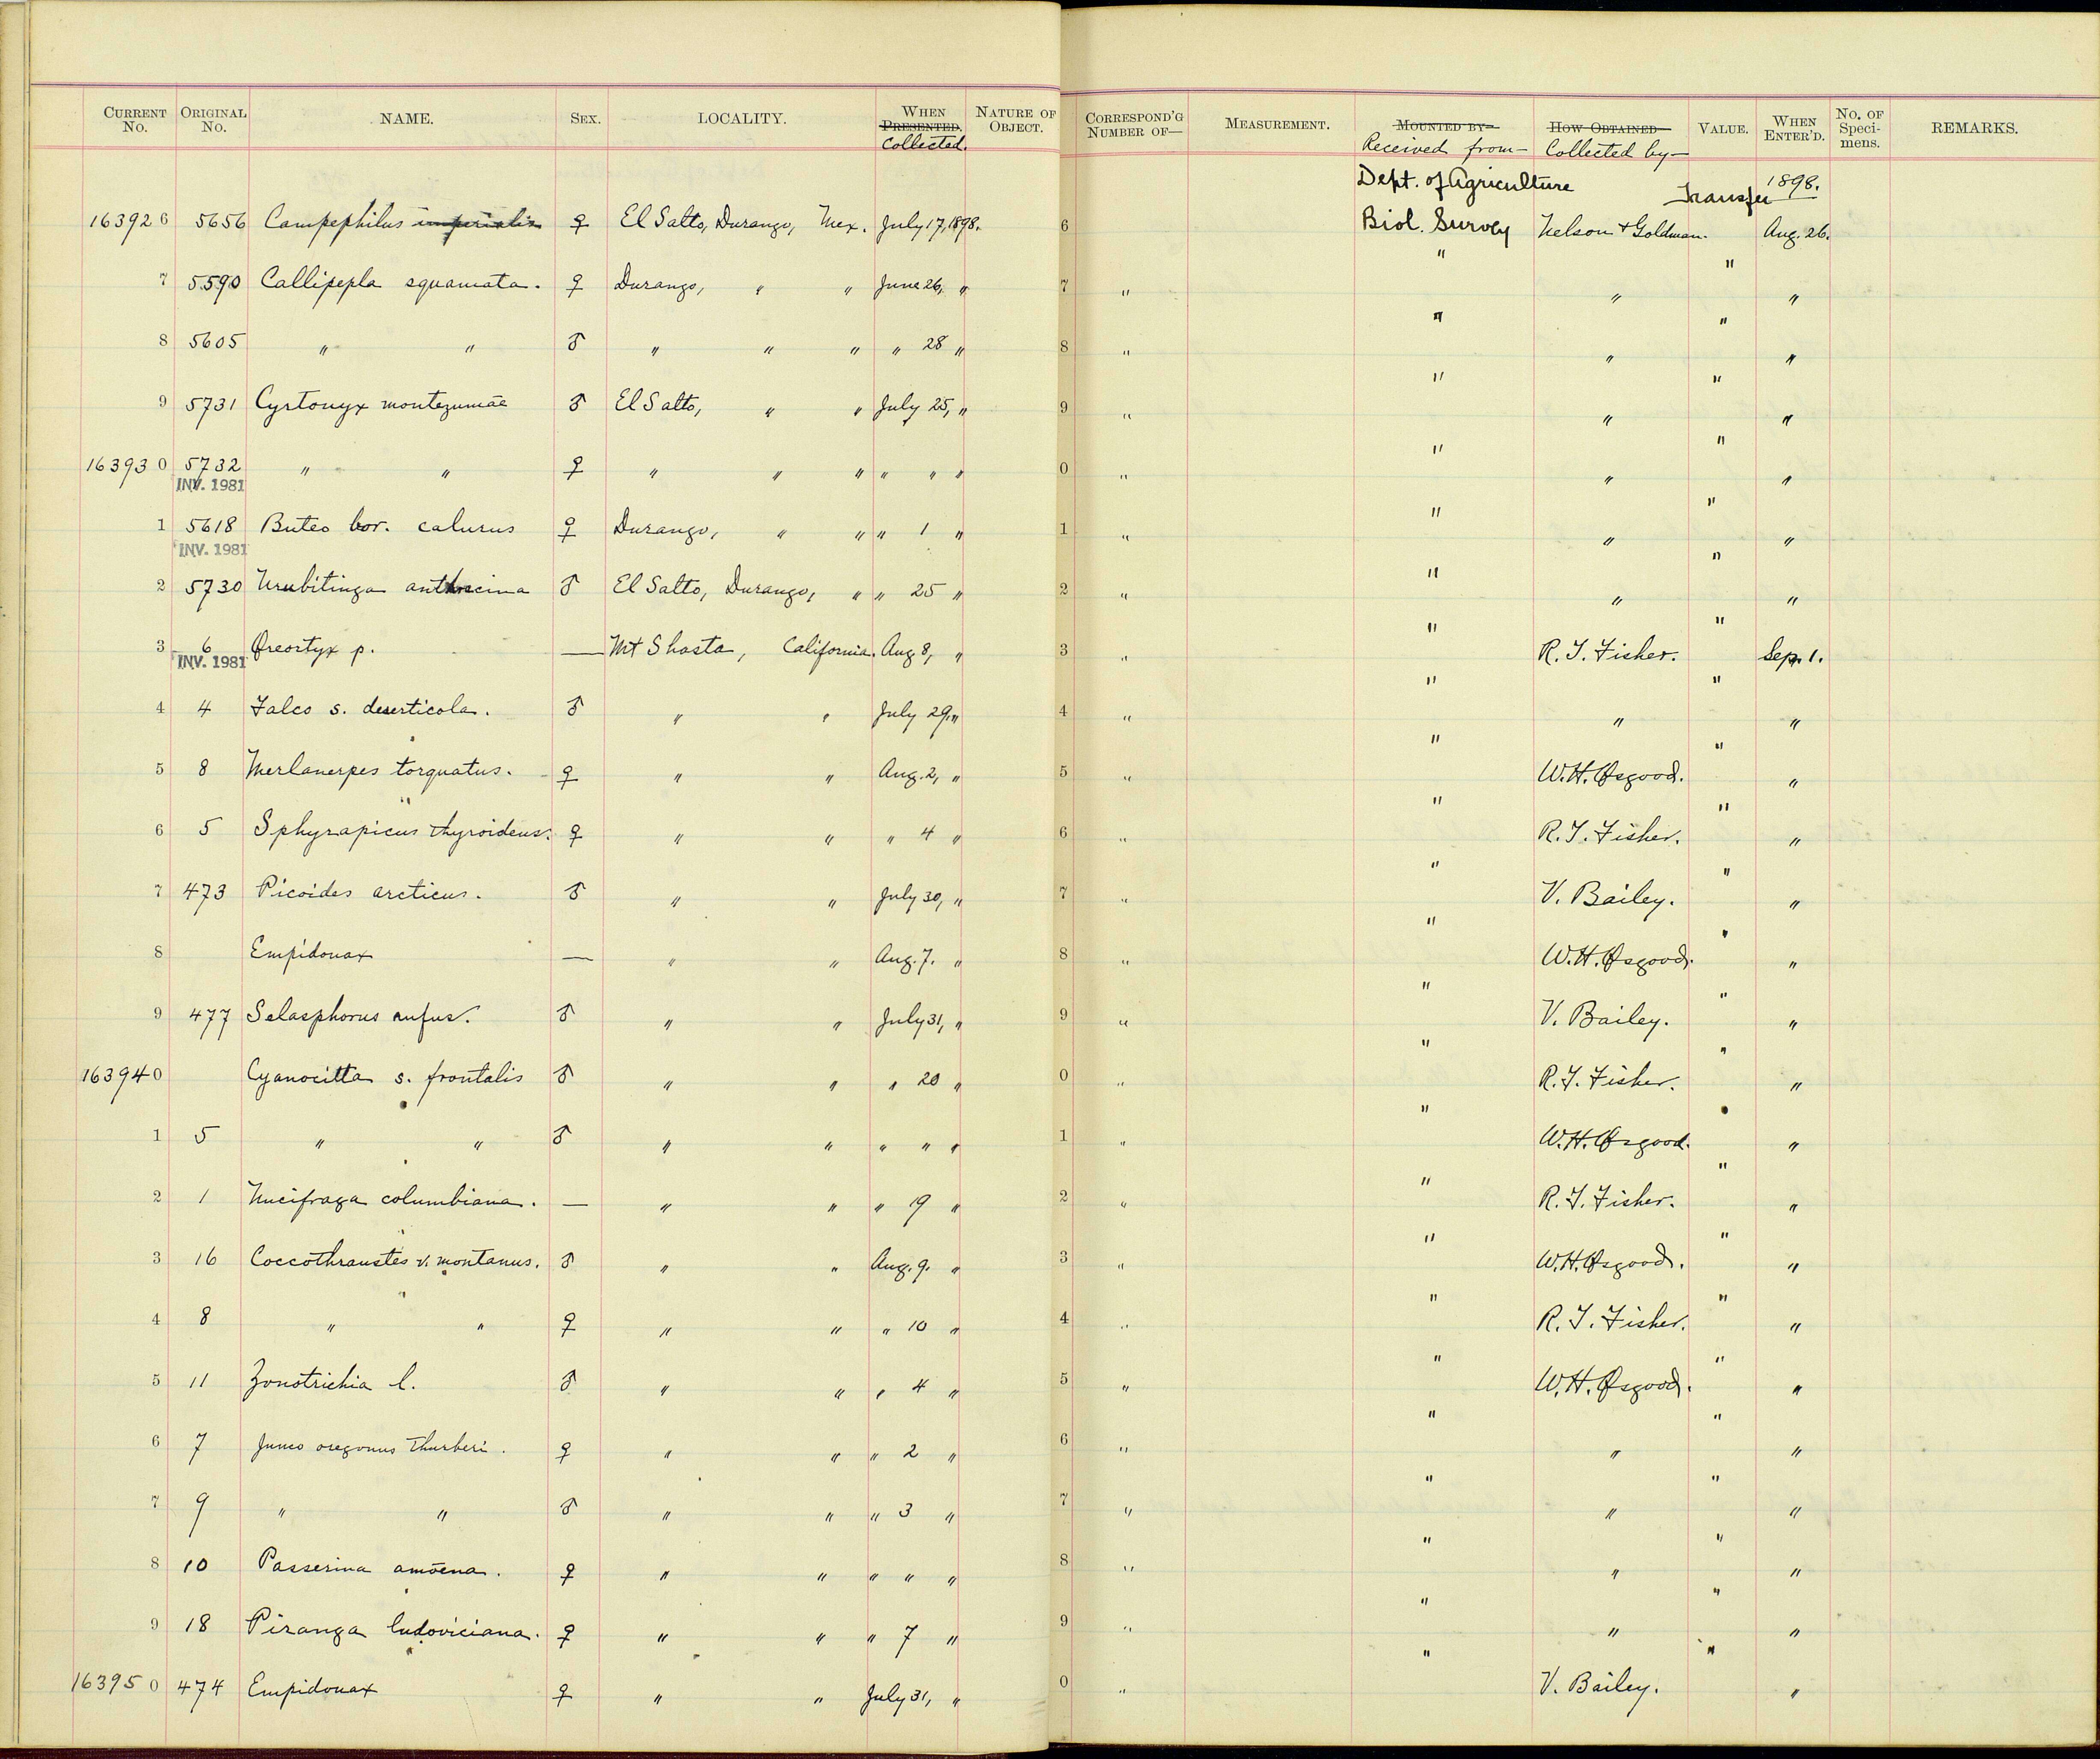 CURRENT No. ORIGINAL No. NAME. SEX. LOCALITY. WHEN PRESENTED. Collected. NATURE OF OBJECT. CORRESPOND'G NUMBER OF— MEASUREMENT. MOUNTED BY— Received from— HOW OBTAINED— Collected by— VALUE. WHEN ENTER'D. No. OF Speci-mens. REMARKS.
Dept. of Agriculture Transfer 1898.
163926 5656 Campephilus imperialis ♀ El Salto, Durango, Mex. July 17, 1898. 6 Biol. Survey Nelson + Goldman. Aug. 26.
7 5590 Callipepla squamata. ♀ Durango, " " June 26, " 7 " " " " "
8 5605 " " ♂ " " " " 28 " 8 " " " " "
9 5731 Cyrtonyx montezumae ♂ El Salto, " " July 25, " 9 " " " " "
163930 5732 " " ♀ " " " " " " 0 " " " " "
INV. 1981
1 5618 Buteo bor. calurus ♀ Durango, " " " 1 " 1 " " " " "
INV. 1981
2 5730 Urubitinga anthracina ♂ El Salto, Durango, " " 25 " 2 " " " " "
3 6 Oreortyx p. — Mt Shasta, California. Aug 8, " 3 " " R. T. Fisher. " Sep. 1.
INV. 1981
4 4 Falco s. deserticola. ♂ " " July 29, " 4 " " " " "
5 8 Merlanerpes torquatus. ♀ " " Aug. 2, " 5 " " W. H. Osgood. " "
6 5 Sphyrapicus thyroideus. ♀ " " " 4 " 6 " " R. T. Fisher. " "
7 473 Picoides arcticus. ♂ " " July 30, " 7 " " V. Bailey. " "
8 Empidonax — " " Aug. 7. " 8 " " W. H. Osgood. " "
9 477 Selasphorus rufus. ♂ " " July 31, " 9 " " V. Bailey. " "
163940 Cyanocitta s. frontalis ♂ " " " 20 " 0 " " R. T. Fisher. " "
1 5 " " ♂ " " " " " 1 " " W. H. Osgood. " "
2 1 Nucifraga columbiana. — " " " 19 " 2 " " R. T. Fisher. " "
3 16 Coccothraustes v. montanus. ♂ " " Aug. 9. " 3 " " W. H. Osgood. " "
4 8 " " ♀ " " " 10 " 4 " " R. T. Fisher. " "
5 11 Zonotrichia l. ♂ " " " 4 " 5 " " W. H. Osgood. " "
6 7 Junco oregonus thurberi. ♀ " " " 2 " 6 " " " " "
7 9 " " ♂ " " " 3 " 7 " " " " "
8 10 Passerina amoena. ♀ " " " " " 8 " " " " "
9 18 Piranga ludoviciana. ♀ " " " 7 " 9 " " " " "
163950 474 Empidonax ♀ " " July 31, " 0 " " V. Bailey. " "